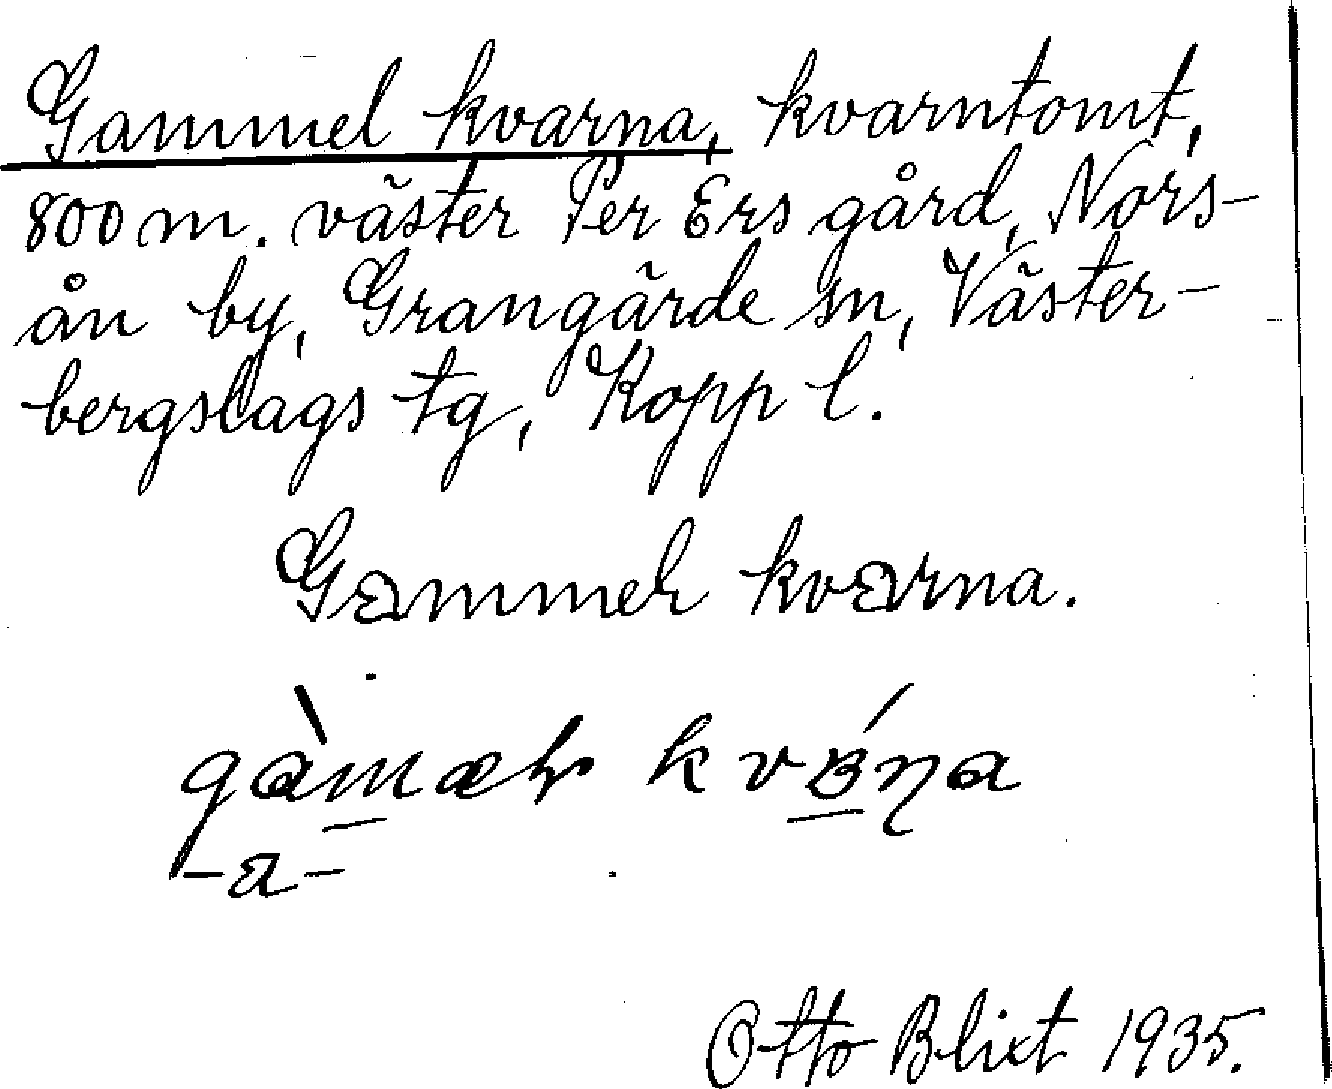 Gammel kvarna, kvarntomt,
800 m. väster Per Ers gård, Nors-
ån by, Grangärde sn, Väster-
bergslags tg, Kopp l.
Gammel kvarna.
-a-
Otto Blixt 1935.